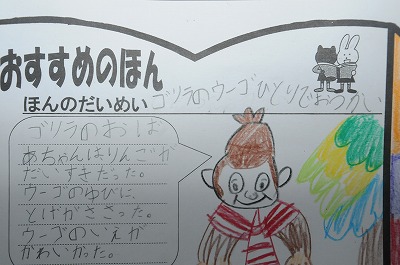 おすすめのほん
ほんのだいめい ゴリラのウーゴひとりでおつかい
ゴリラのおば
あちゃんはりんごが
だいすきだった。
ウーゴのゆびに、
とげがささった。
ウーゴのいえが
かわいかった。